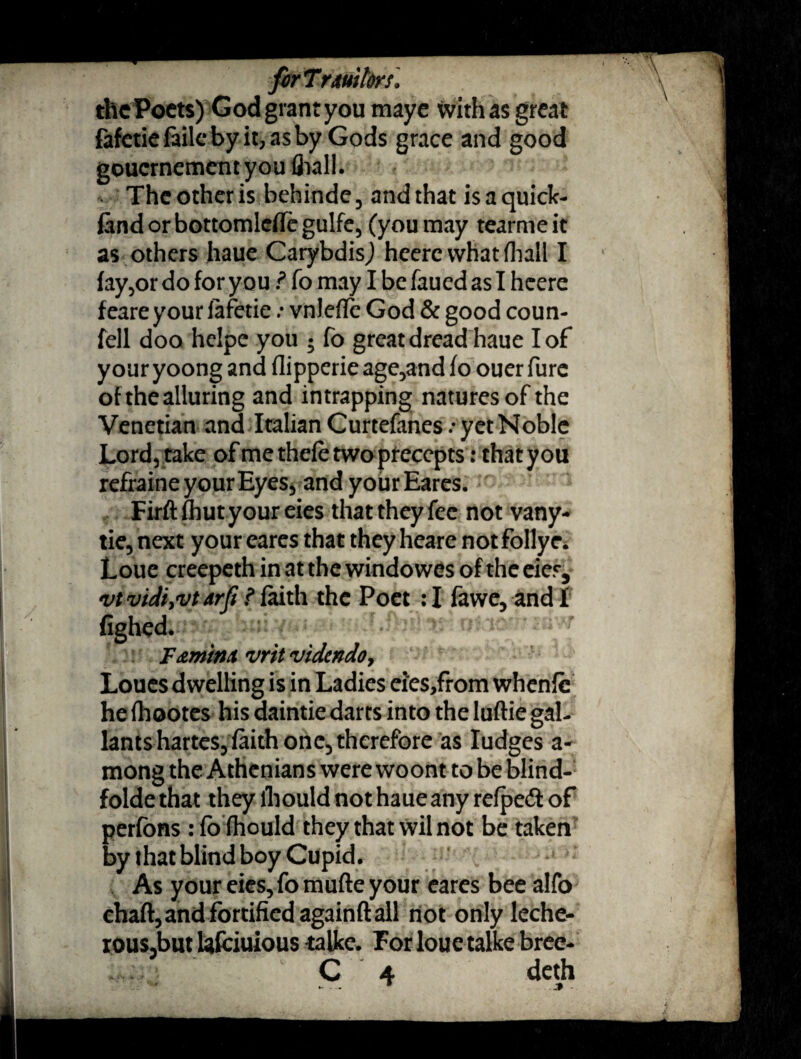 for Trauilors.
the Poets) God grant you maye with as great
ſafetie ſaile by it, as by Gods grace and good
gouernement you ſhall.
The other is behinde, and that is a quick-
ſand or bottomleſſe gulfe, (you may tearme it
as others haue Carybdis) heere what ſhall I
ſay,or do for you ? ſo may I be ſaued as I heere
feare your ſafetie : vnleſſe God & good coun-
ſell doo helpe you ; ſo great dread haue I of
your yoong and ſlipperie age,and ſo ouer ſure
of the alluring and intrapping natures of the
Venetian and Italian Curteſanes : yet Noble
Lord, take of me theſe two precepts : that you
refraine your Eyes, and your Eares.
Firſt ſhut your eies that they ſee not vany-
tie, next your eares that they heare not follye.
Loue creepeth in at the windowes of the eies,
vt vidi,vt arſi ? ſaith the Poet : I ſawe, and I
ſighed.
Fæmina vrit videndo,
Loues dwelling is in Ladies eies,from whenſe
he ſhootes his daintie darts into the luſtie gal-
lants hartes, ſaith one, therefore as Iudges a-
mong the Athenians were woont to be blind-
folde that they ſhould not haue any reſpect of
perſons : ſo ſhould they that wil not be taken
by that blind boy Cupid.
As your eies, ſo muſte your eares bee alſo
chaſt, and fortified againſt all not only leche-
rous,but laſciuious talke. For loue talke bree-
C 4 deth